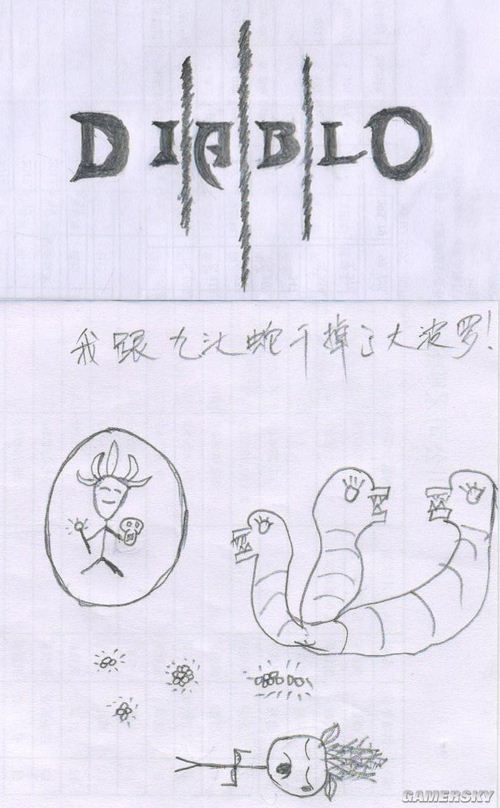 DIABLO
我跟九头蛇干掉了大波罗!
GAMERSKY